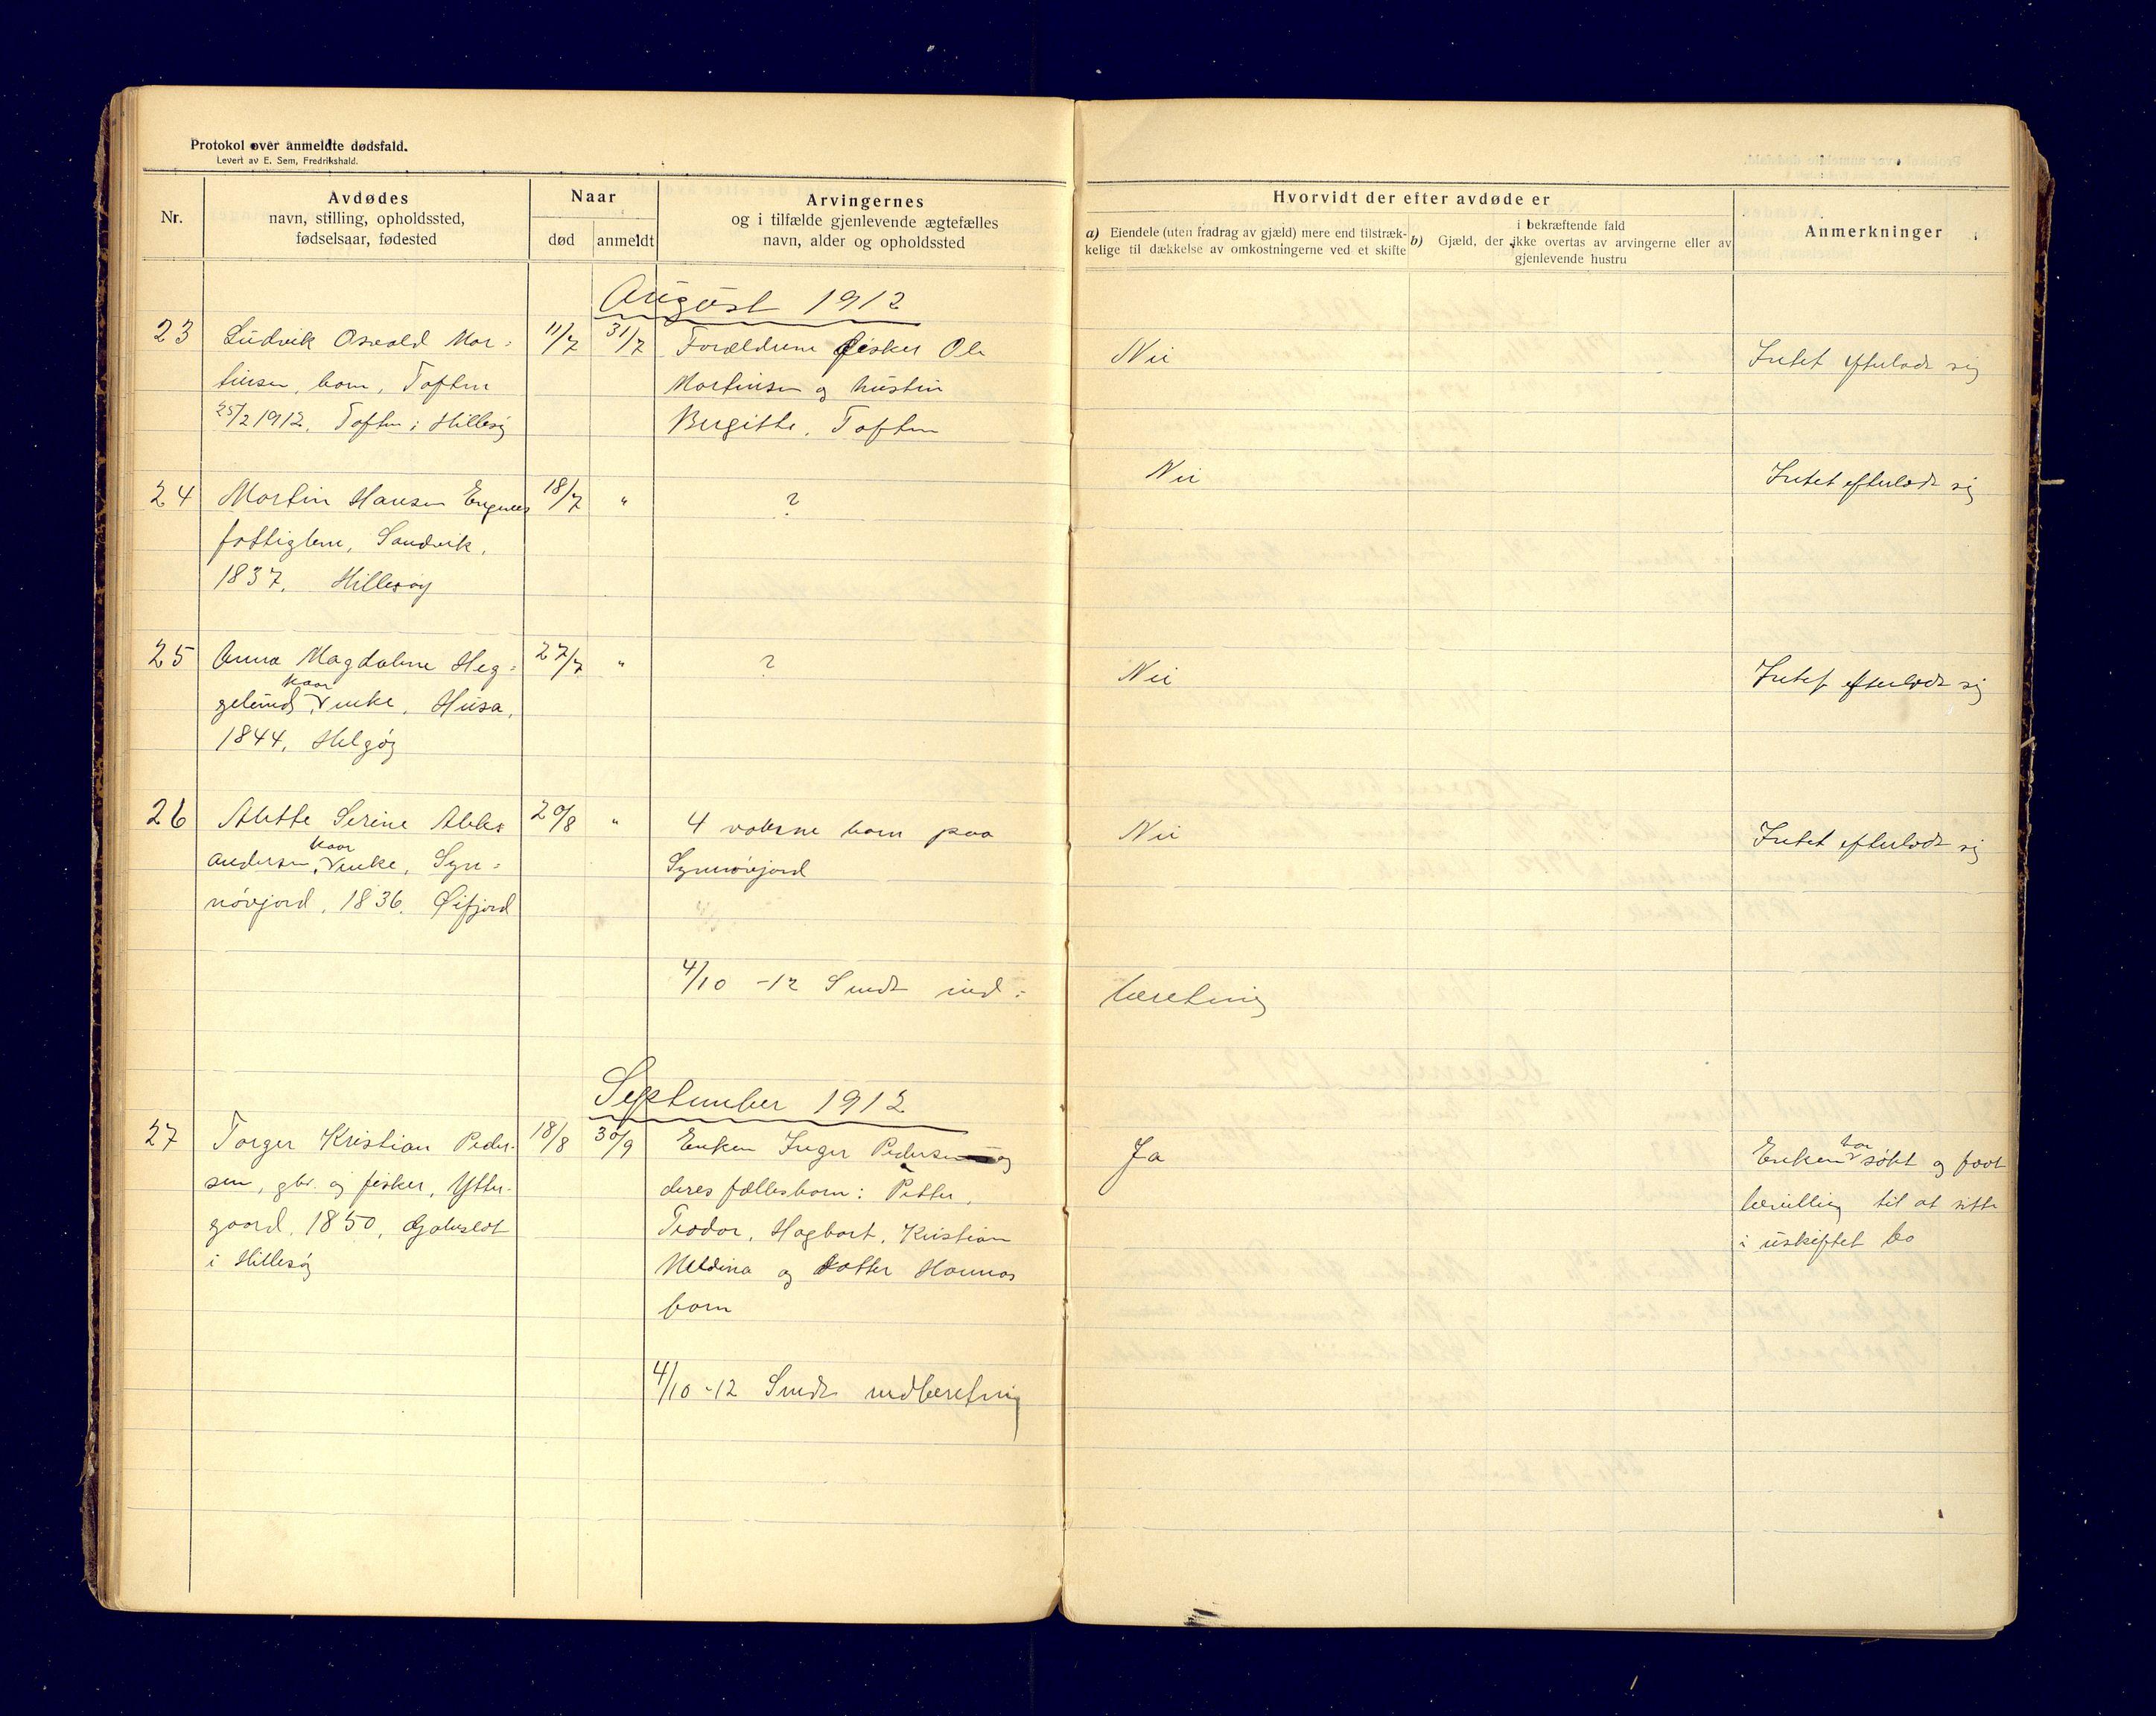 Protokol over anmeldte dødsfald.
Levert av E. Sem, Fredrikshald.
Nr.
Avdødes
navn, stilling, opholdssted,
fødselsaar, fødested
Naar
død
anmeldt
Arvingernes
og i tilfælde gjenlevende ægtefælles
navn, alder og opholdssted
Hvorvidt der efter avdøde er
a) Eiendele (uten fradrag av gjæld) mere end tilstræk-
kelige til dækkelse av omkostningerne ved et skifte
i bekræftende fald
b) Gjæld, der ikke overtas av arvingerne eller av
gjenlevende hustru
Anmerkninger
August 1912
23
Ludvik Osvald Mor-
tinsen, barn, Toften
25/2 1912. Toften i Hillesøy
11/7
31/7
Forældrene fisker Ole
Martinsen og hustru
Birgitte, Toften
Nei
Intet efterlodt sig
24
Martin Hansen Engenes
fattiglem, Sandvik,
1837. Hillesøy
18/7
"
?
Nei
Intet efterlodt sig
25
Anna Magdalene Heg-
gelund, kaar enke, Husa,
1844, Helgøy
27/7
"
?
Nei
Intet efterlodt sig
26
Alette Serine Aleks
andersen, kaar enke, Syn-
nøvjord, 1836. Øifjord
20/8
"
4 voksne barn paa
Synnøvjord
Nei
Intet efterlodt sig
4/10 -12 Sendt ind-
beretning
September 1912
27
Torger Kristian Peder-
sen, gbr. og fisker, Ytter-
gaard, 1850, Gjøvslot
i Hillesøy
18/8
30/9
Enken Inger Pedersen og
deres fællesbarn: Petter,
Teodor, Hagbart, Kristian
Meldina og datter Hannas
barn
Ja
Enken har søkt og faat
bevilling til at sitte
i uskiftet bo
4/10 -12 Sendt indberetning